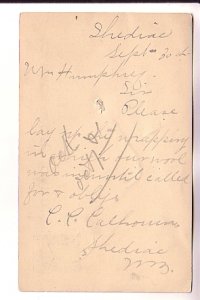 Shediac
Sept 30th
Wm Humphrey.
Sir
Please
lay up the wrapping
in which our wool
was until called
for & oblige
C. C. Calhoun
Shediac
NB.